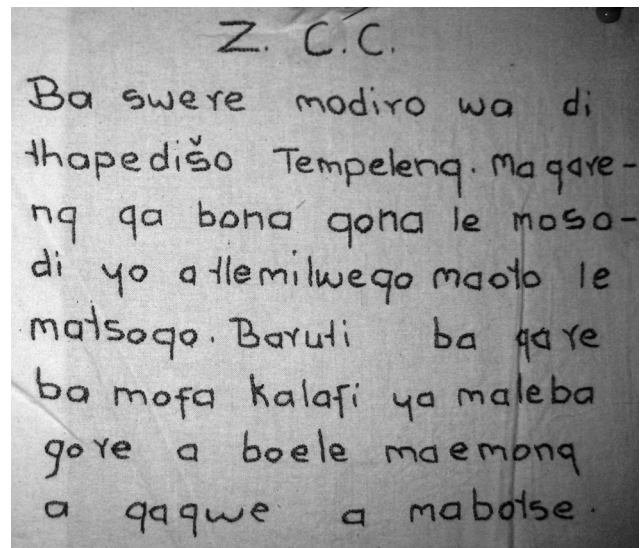 Z. C.C.
Ba swere modiro wa di
thapedišo Tempeleng. Magare-
ng ga bona gona le moso-
di yo a tlemilwego maoto le
matsogo. Baruti ba gare
ba mofa kalafi ya maleba
gore a boele maemong
a gagwe a mabotse.